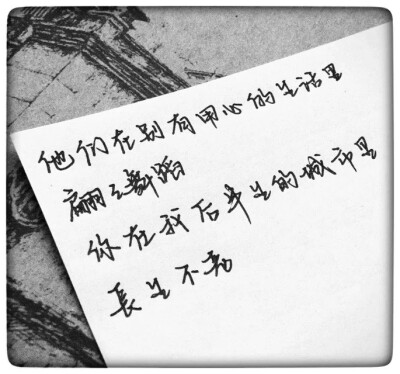 他们在别有用心的生活里
翩々舞蹈
你在我后半生的城市里
長生不亮